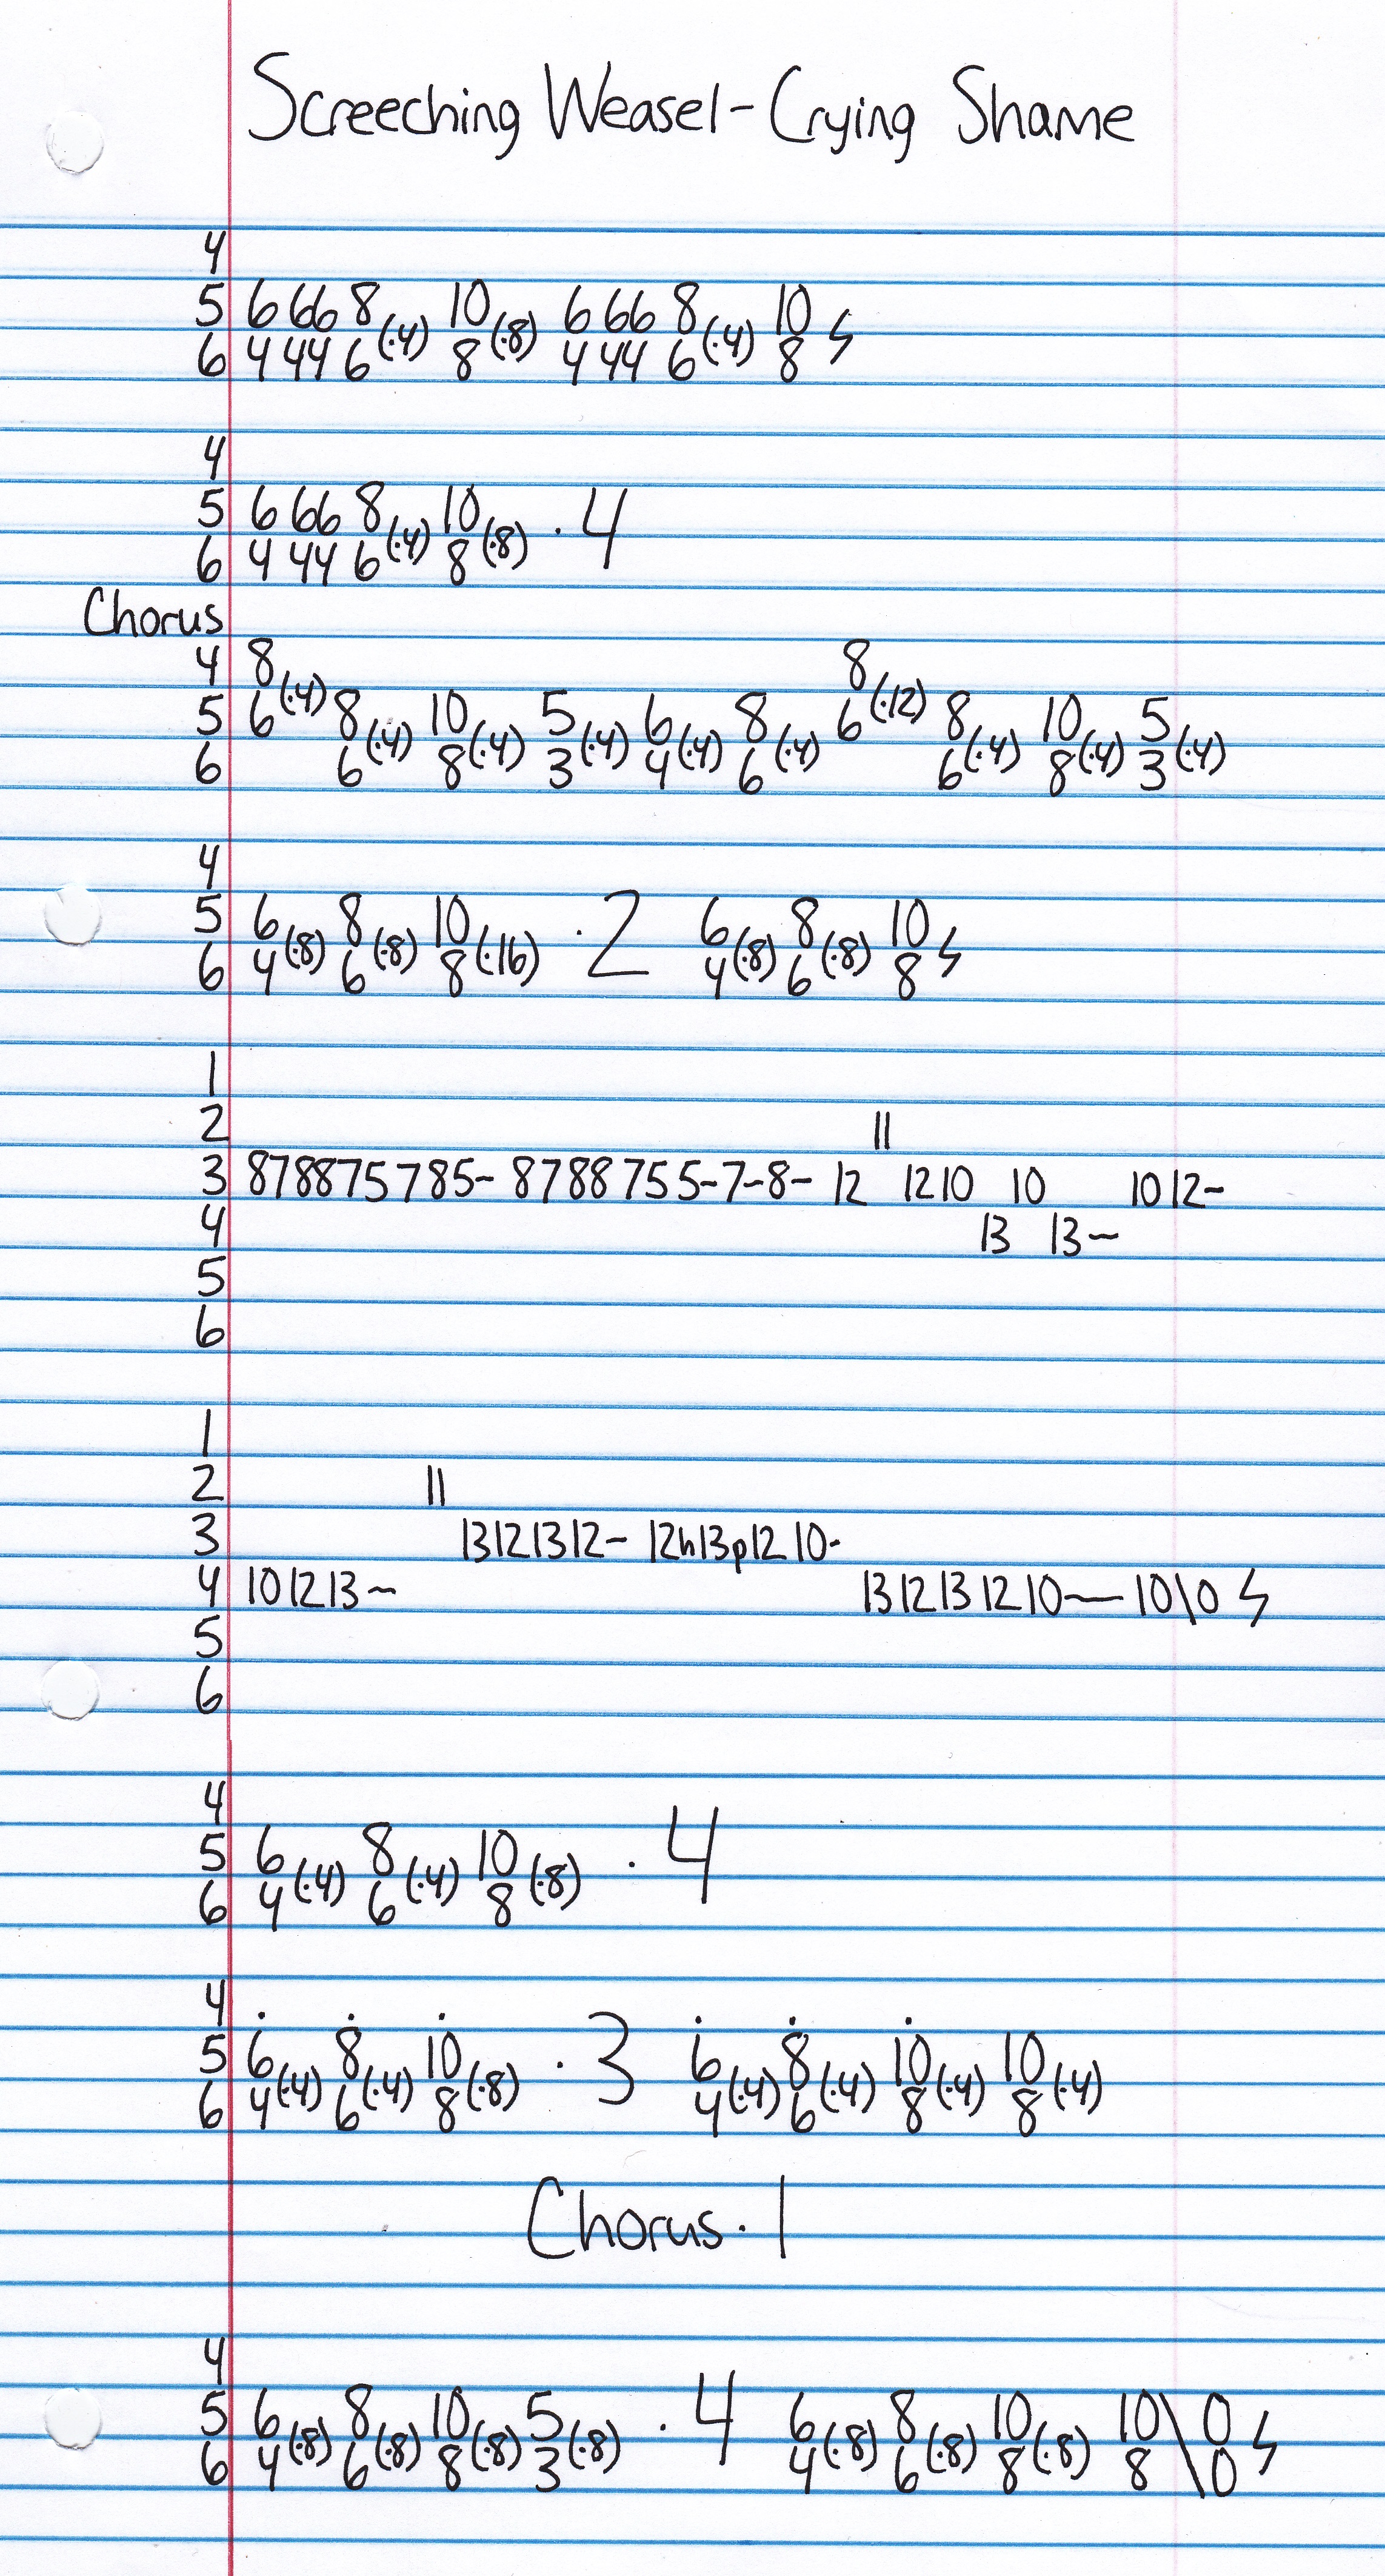 Screeching Weasel - Crying Shame
4
5 6 66 8 10 6 66 8 10
(·4) (·8) (·4) ϟ
6 4 44 6 8 4 44 6 8
4
5 6 66 8 10
(·4) (·8) · 4
6 4 44 6 8
Chorus
4 8 8
(·4) (·12)
5 6 8 10 5 6 8 6 8 10 5
(·4) (·4) (·4) (·4) (·4) (·4) (·4) (·4)
6 6 8 3 4 6 6 8 3
4
5 6 8 10 6 8 10
(·8) (·8) (·16) · 2 (·8) (·8) ϟ
6 4 6 8 4 6 8
1
2 11
3 878875785- 8788755-7-8- 12 1210 10 1012-
4 13 13~
5
6
1
2 11
3 13121312- 12h13p1210-
4 101213~ 1312131210— 10\0 ϟ
5
6
4
5 6 8 10
(·4) (·4) (·8) · 4
6 4 6 8
4 . . . . . .
5 6 8 10 6 8 10 10
(·4) (·4) (·8) · 3 (·4) (·4) (·4) (·4)
6 4 6 8 4 6 8 8
Chorus · 1
4
5 6 8 10 5 6 8 10 10\0
(·8) (·8) (·8) (·8) · 4 (·8) (·8) (·8) ϟ
6 4 6 8 3 4 6 8 8\0